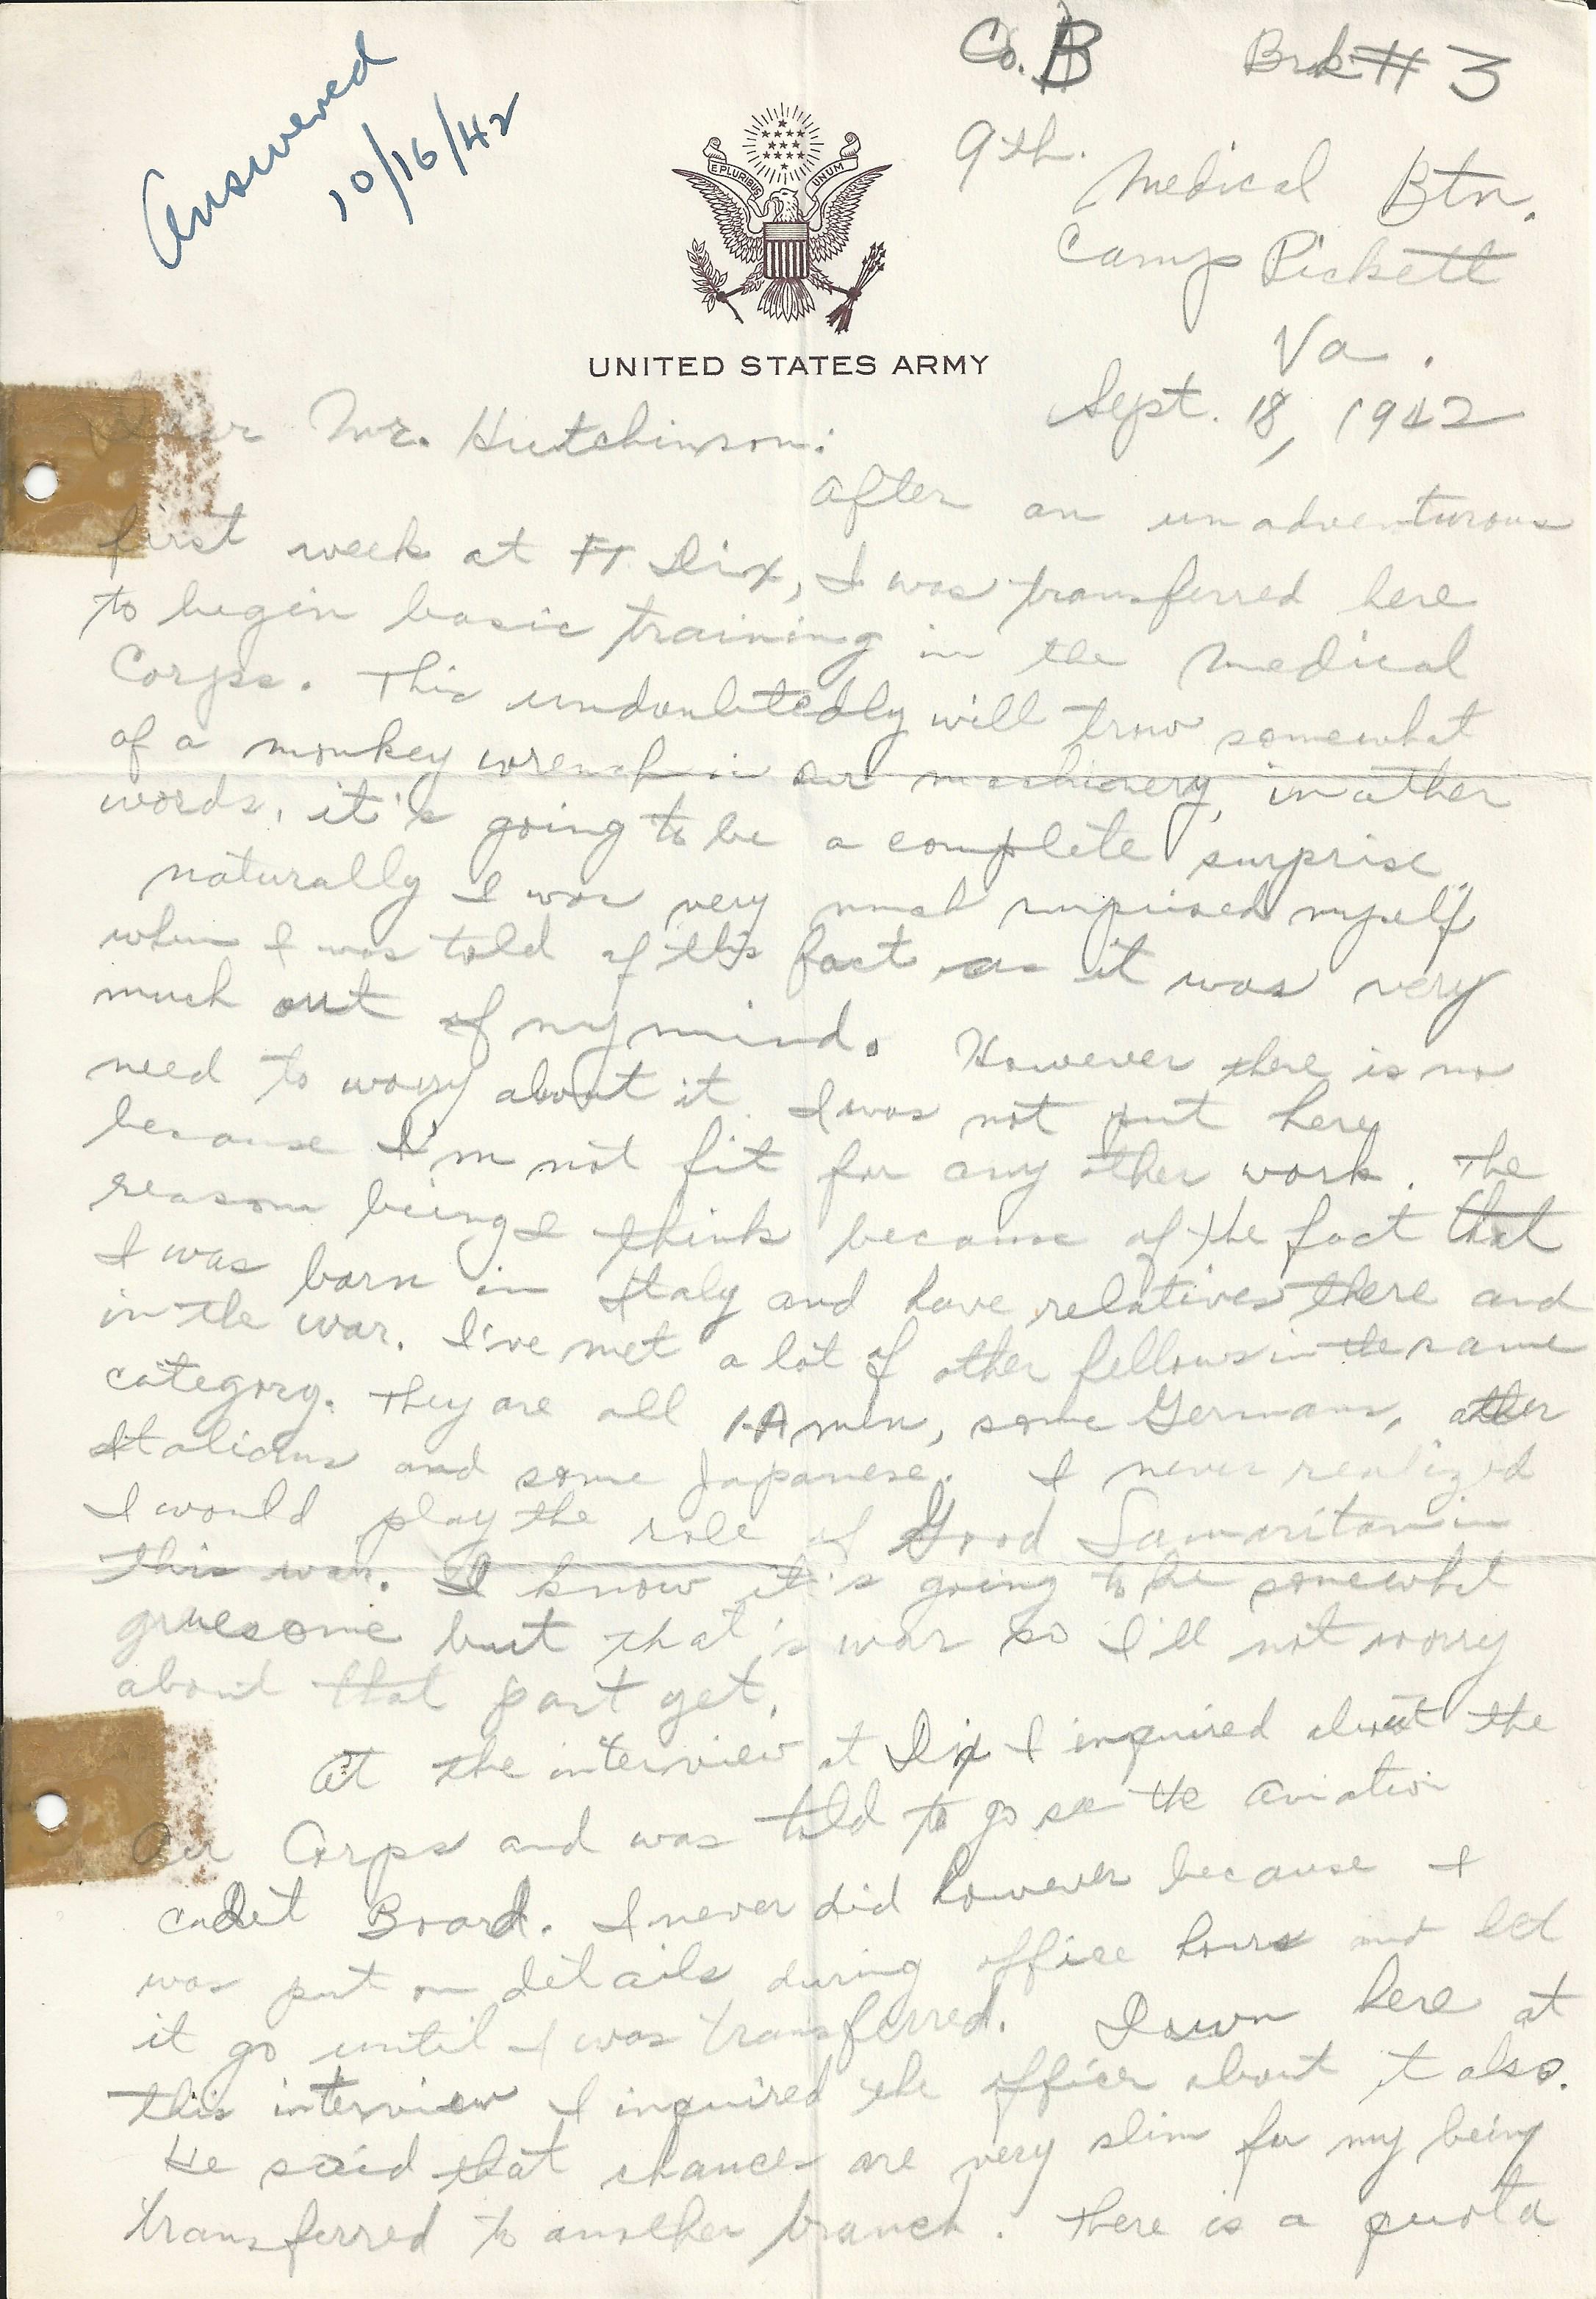 Answered
10/16/42
Co. B Brk # 3
9th.
Medical Btn.
Camp Pickett
Va.
Sept. 18, 1942
E PLURIBUS UNUM
UNITED STATES ARMY
Dear Mr. Hutchinson:
After an unadventurous
first week at Ft Dix, I was transferred here
to begin basic training in the Medical
Corps. This undoubtedly will trow somewhat
of a monkey wrench in our machinery, in other
words, it's going to be a complete surprise
naturally I was very much surprised myself
when I was told of this fact as it was very
much out of my mind. However there is no
need to worry about it. I was not put here
because I'm not fit for any other work. The
reason being I think because of the fact that
I was born in Italy and have relatives there and
in the war. I've met a lot of other fellows in the same
category. They are all 1-A men, some Germans, other
Italians and some Japanese. I never realized
I would play the role of Good Samaritan in
this war. I know it's going to be somewhat
gruesome but that's war so I'll not worry
about that part yet.
At the interview at Dix I inquired about the
Air Corps and was told to go see the aviation
cadet Board. I never did however because I
was put on details during office hours and let
it go until I was transferred. Down here at
this interview I inquired the officer about it also.
He said that chances are very slim for my being
transferred to another branch. There is a quota